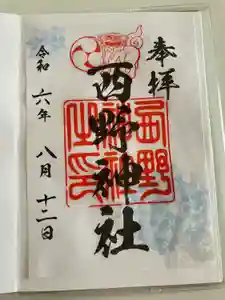 奉拝
西野神社
西野
神社
之印
令和六年八月十二日